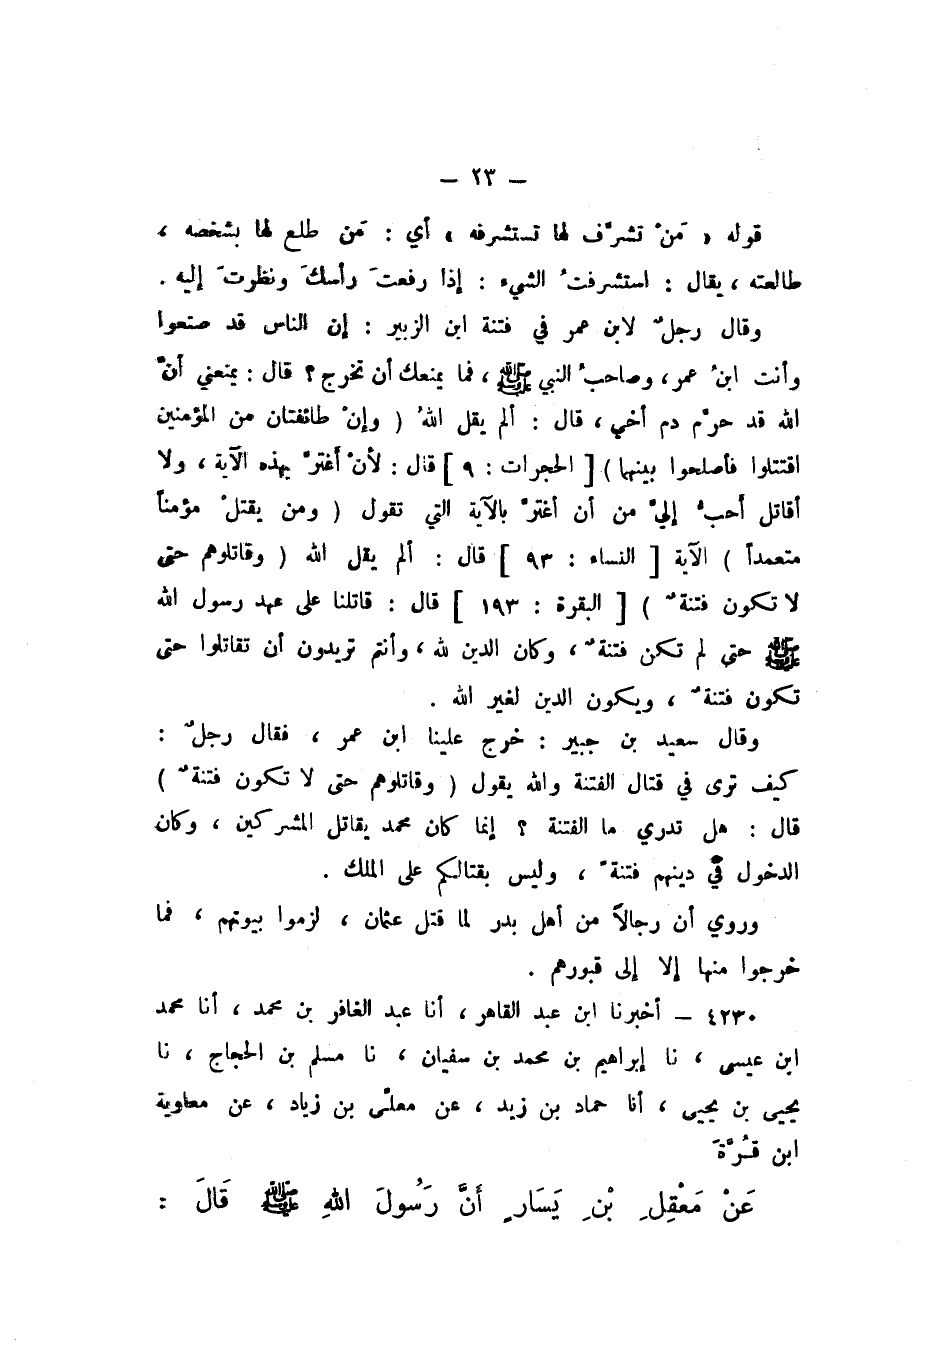 – ٢٣ –
قوله « مَنْ تشرَّف لها تستشرفه » أي : مَن طلع لها بشخصه ،
طالعته ، يقال : استشرفتُ الشيء : إذا رفعتَ رأسكَ ونظرتَ إليه .
وقال رجلٌ لابن عمر في فتنة ابن الزبير : إن الناس قد صنعوا
وأنت ابنُ عمر ، وصاحبُ النبي ﷺ ، فما يمنعك أن تخرج ؟ قال : يمنعني أنَّ
الله قد حرَّم دم أخي ، قال : ألم يقل اللهُ ( وإنْ طائفتان من المؤمنين
اقتتلوا فأصلحوا بينهما ) [ الحجرات : ٩ ] قال : لأنْ أغترَّ بهذه الآية ، ولا
أقاتل أحبُّ إليَّ من أن أغترَّ بالآية التي تقول ( ومن يقتلْ مؤمناً
متعمداً ) الآية [ النساء : ٩٣ ] قال : ألم يقل الله ( وقاتلوهم حتى
لا تكون فتنةٌ ) [ البقرة : ١٩٣ ] قال : قاتلنا على عهد رسول الله
ﷺ حتى لم تكن فتنةٌ ، وكان الدين لله ، وأنتم تريدون أن تقاتلوا حتى
تكون فتنةٌ ، ويكون الدين لغير الله .
وقال سعيد بن جبير : خرج علينا ابن عمر ، فقال رجلٌ :
كيف ترى في قتال الفتنة والله يقول ( وقاتلوهم حتى لا تكون فتنةٌ )
قال : هل تدري ما الفتنة ؟ إنما كان محمد يقاتل المشركين ، وكان
الدخول في دينهم فتنةً ، وليس بقتالكم على الملك .
وروي أن رجالاً من أهل بدر لما قتل عثمان ، لزموا بيوتهم ، فما
خرجوا منها إلا إلى قبورهم .
٤٢٣٠ – أخبرنا ابن عبد القاهر ، أنا عبد الغافر بن محمد ، أنا محمد
ابن عيسى ، نا إبراهيم بن محمد بن سفيان ، نا مسلم بن الحجاج ، نا
يحيى بن يحيى ، أنا حماد بن زيد ، عن معلَّى بن زياد ، عن معاوية
ابن قُرَّةَ
عَنْ مَعْقِلِ بْنِ يَسَارٍ أَنَّ رَسُولَ اللهِ ﷺ قَالَ :